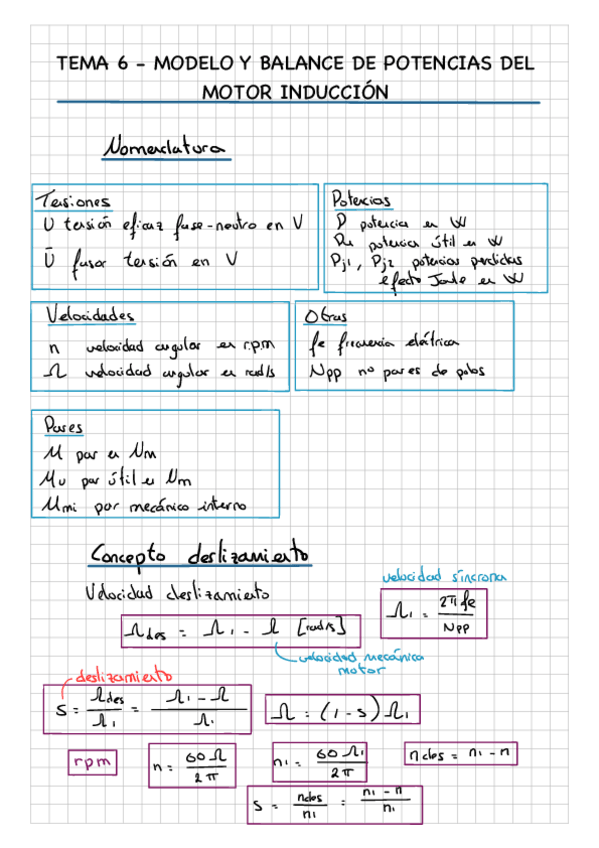 TEMA 6 - MODELO Y BALANCE DE POTENCIAS DEL
MOTOR INDUCCIÓN
Nomenclatura
Tensiones
U tensión eficaz fase-neutro en V
Ū fasor tensión en V
Potencias
P potencia en W
Pu potencia útil en W
Pj1, Pj2 potencias perdidas
efecto Joule en W
Velocidades
n velocidad angular en r.p.m
Ω velocidad angular en rad/s
Otras
fe frecuencia eléctrica
Npp no pares de polos
Pares
M par en Nm
Mu par útil en Nm
Mmi par mecánico interno
Concepto deslizamiento
Velocidad deslizamiento
velocidad síncrona
Ωdes = Ω1 - Ω [rad/s]
Ω1 = 2π fe / Npp
velocidad mecánica
motor
deslizamiento
s = Ωdes / Ω1 = Ω1 - Ω / Ω1
Ω = (1 - s) Ω1
rpm
n = 60 Ω / 2π
n1 = 60 Ω1 / 2π
ndes = n1 - n
s = ndes / n1 = n1 - n / n1